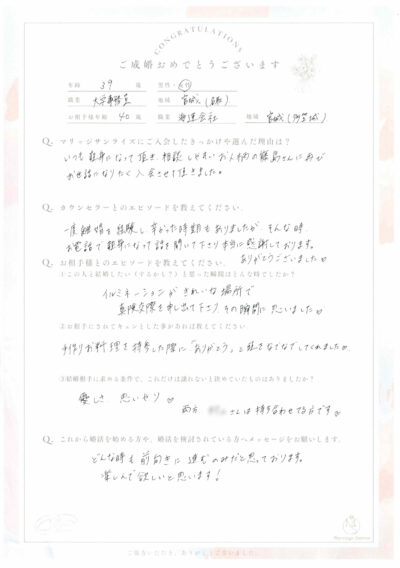 CONGRATULATIONS
ご成婚おめでとうございます
年齢 39 歳 男性・女性
職業 大学事務員 地域 宮城
お相手様年齢 40 歳 職業 運送会社 地域 宮城
Q. マリッジサンライズにご入会したきっかけや選んだ理由は？
いつも親身になって頂き、相談しやすいお人柄の
お世話になりたく入会させて頂きました。
Q. カウンセラーとのエピソードを教えてください。
一度離婚を経験し辛かった時期もありましたが、そんな時、
お電話で親身になって話を聞いて下さり本当に感謝しております。
ありがとうございました♡
Q. お相手様とのエピソードを教えてください。
①この人と結婚したい（するかも？）と思った瞬間はどんな時でしたか？
イルミネーションがきれいな場所で
真剣交際を申し出て下さり、その瞬間に思いました♡
②お相手にされてキュンとした事があれば教えてください
手作りお料理を持参した際に「ありがとう」と頭をなでなでしてくれました♡
③結婚相手に求める条件で、これだけは譲れないと決めていたものはありましたか？
優しさ 思いやり♡
両方 さんは持ち合わせてる方です♡
Q. これから婚活を始める方や、婚活を検討されている方へメッセージをお願いします。
どんな時も前向きに進むのみだと思っております。
楽しんで欲しいと思います！
Marriage Sunrise
ご協力いただき、ありがとうございました。